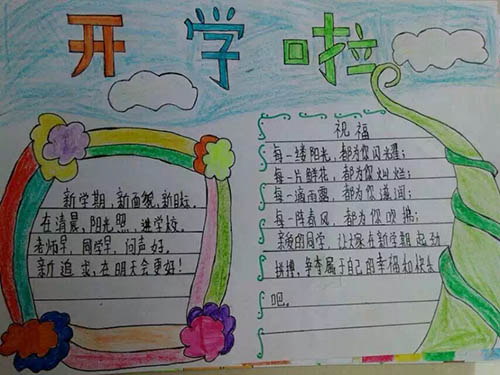 开学啦
新学期,新面貌,新目标。
在清晨,阳光照,进学校。
老师早,同学早,问声好。
新追求,在明天会更好!
祝福
每一缕阳光,都为你闪光耀;
每一片鲜花,都为你灿烂;
每一滴雨露,都为你滋润;
每一阵春风,都为你吹拂;
亲爱的同学,让大家在新学期起劲
拼搏,争夺属于自己的幸福和快乐
吧。